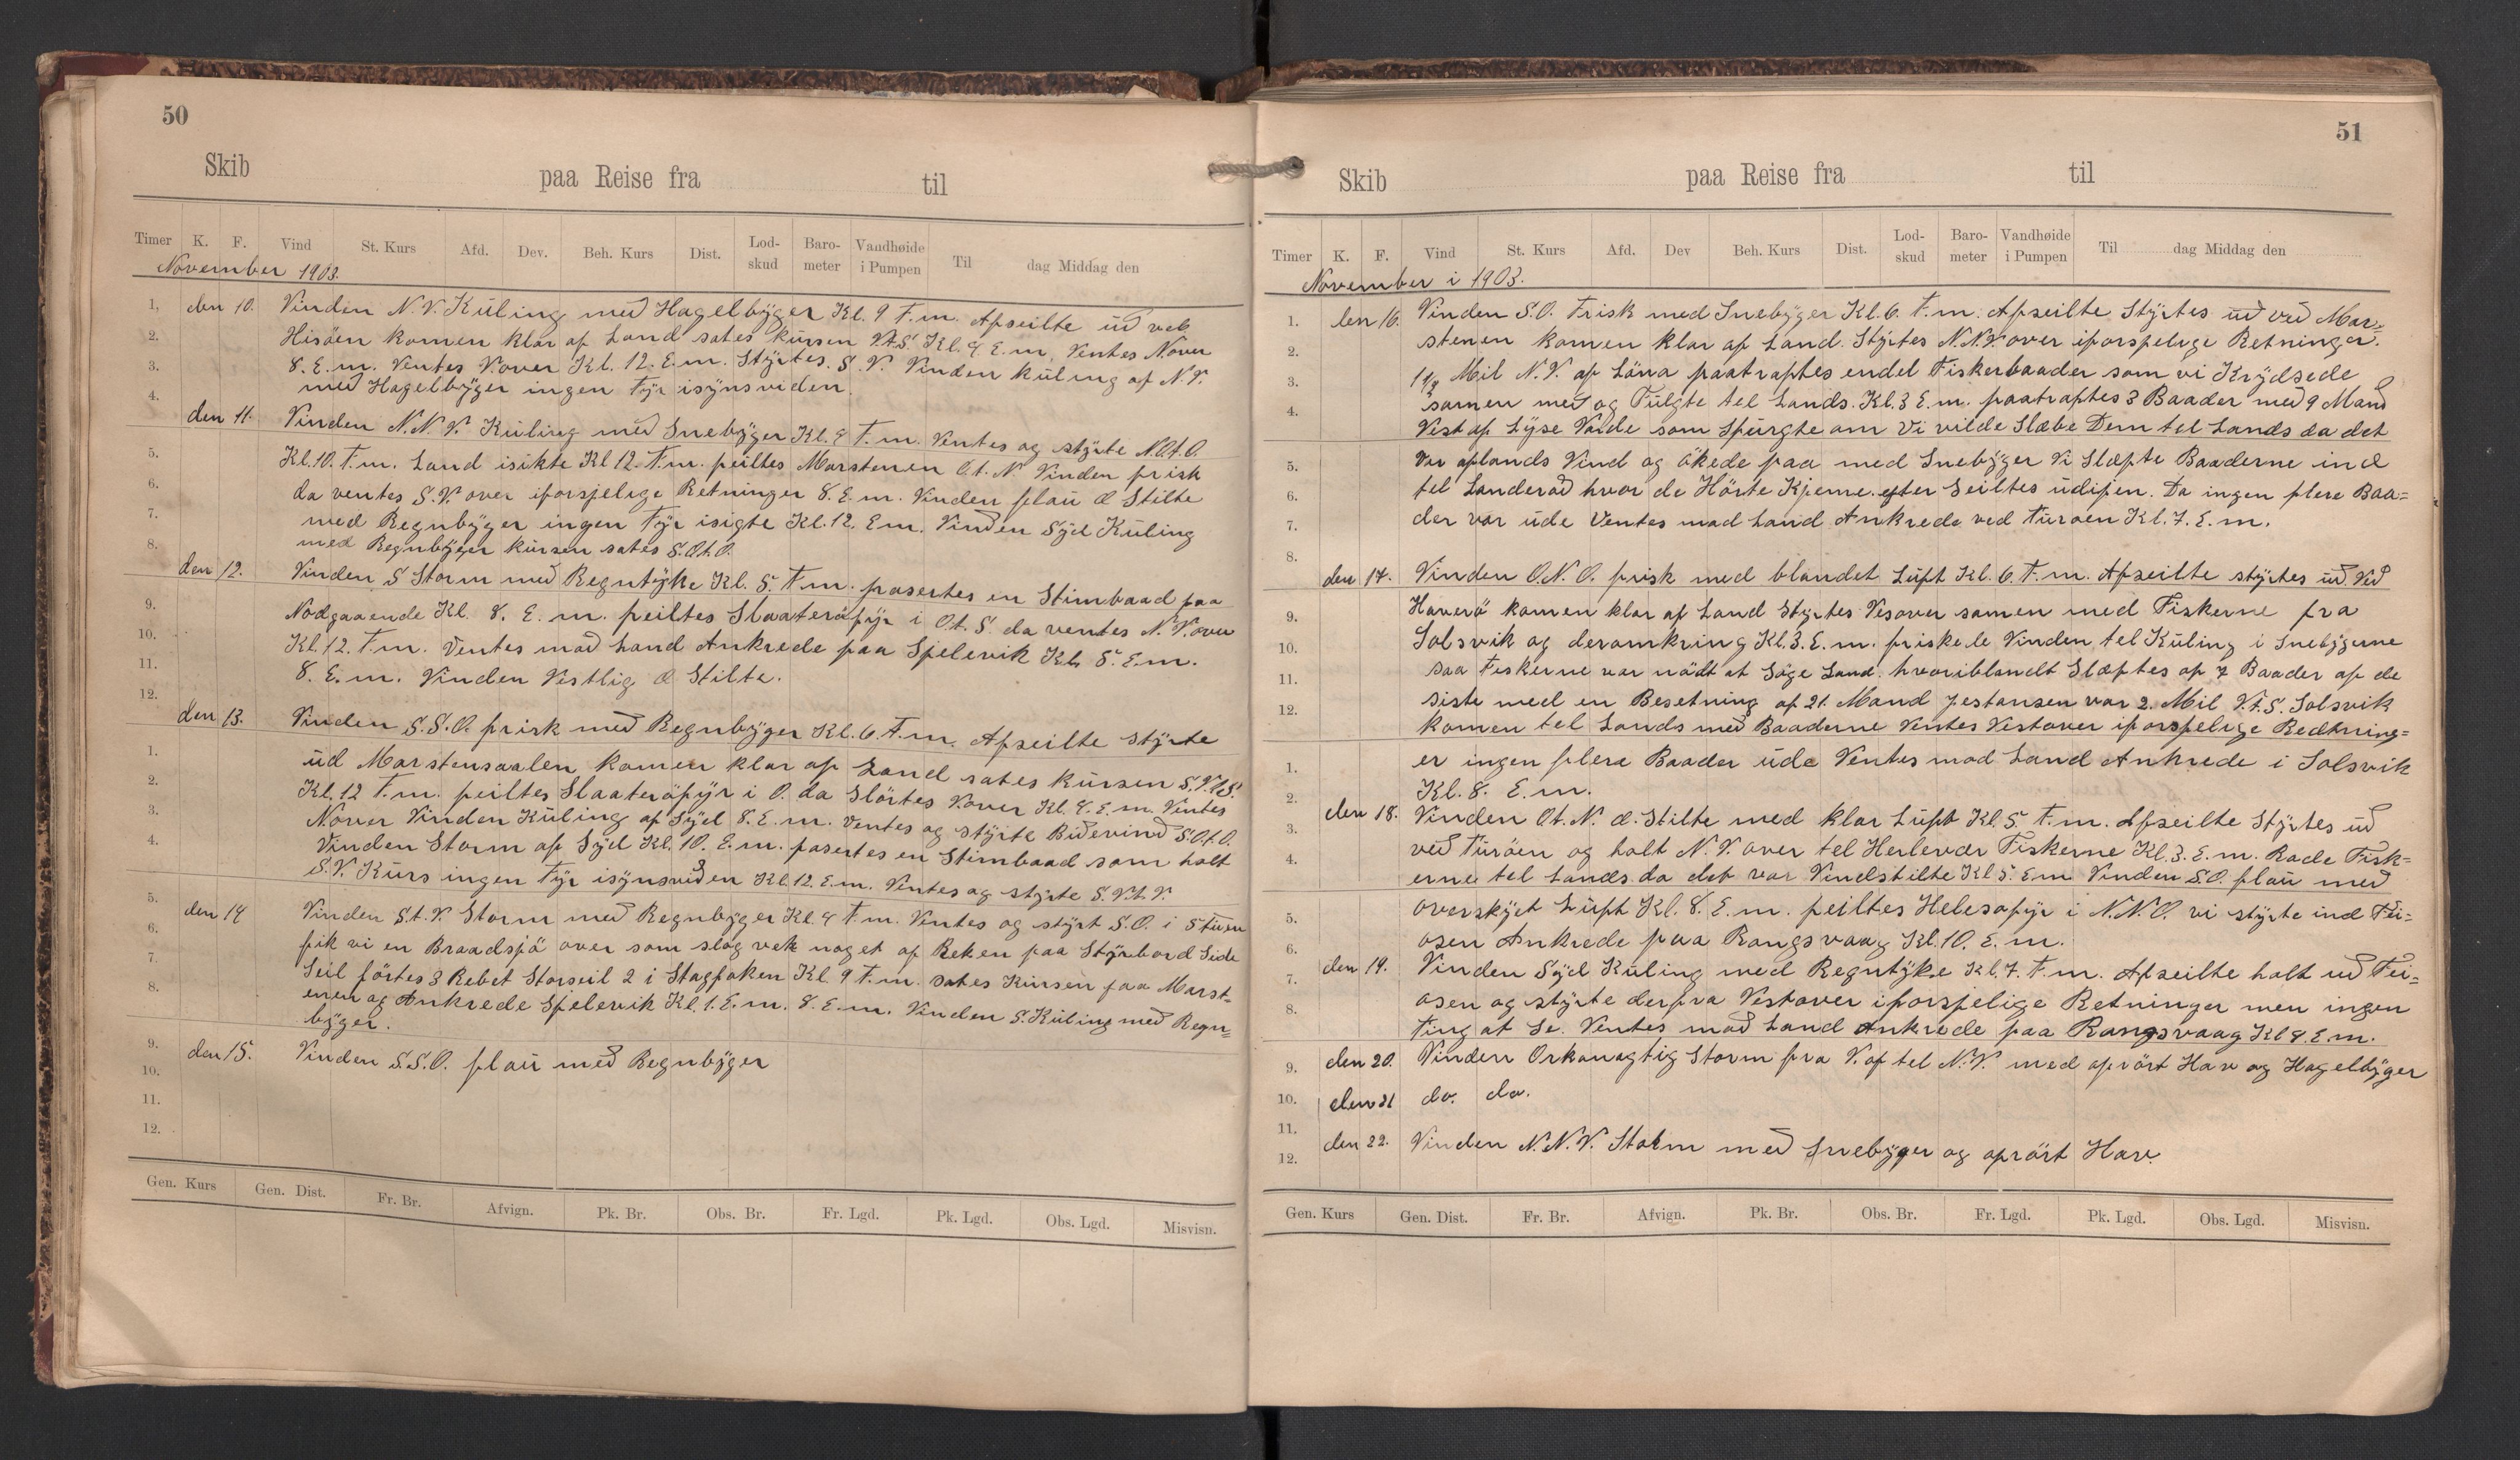 50
Skib paa Reise fra til
Timer K. F. Vind St. Kurs Afd. Dev. Beh. Kurs Dist. Lod-skud Baro-meter Vandhøide i Pumpen Til dag Middag den
November 1903.
den 10. Vinden N.V. Kuling med Hagelbyger Kl. 9 F.m. Afseilte ud ved
Hisöen komen klar af Land sates kursen V.t.S. Kl. 4 E.m. Ventes N.over
8. E.m. Ventes V.over Kl. 12. E.m. Styrtes. S.V. Vinden kuling af N.V.
med Hagelbyger ingen Fyr isynsviden.
den 11. Vinden N.N.V. Kuling med Snebyger Kl. 4 F.m. Ventes og styrte N.O.t.O.
Kl. 10. F.m. Land isikte Kl 12. F.m. peiltes Marstenen O.t.N. Vinden frisk
da ventes S.V. over iforsjelige Retninger 8. E.m. Vinden flau & Stilte
med Regnbyger ingen Fyr isigte Kl. 12. Em. Vinden Syd Kuling
med Regnbyger kursen sates S.O.t.O.
den 12. Vinden S Storm med Regntyke Kl. 5. F.m. pasertes en Stimbaad paa
Nodgaaende Kl. 8. E.m. peiltes Slaateröfyr i O.t.S. da ventes N.V. over
Kl. 12. F.m. Ventes mod Land Ankrede paa Spelevik Kl. 5. E.m.
8. E.m. Vinden Vestlig & Stilte.
den 13. Vinden S.S.O. frisk med Regnbyger Kl. 6. F.m. Afseilte styrte
ud Marstensaalen komen klar af Land sates kursen S.V.t.S.
Kl. 12 F.m. peiltes Slaateröfyr i O. da Slörtes V.over Kl. 4. E.m. Ventes
N.over Vinden Kuling af Syd 8. E.m. Ventes og styrte Bidevind S.O.t.O.
Vinden Storm af Syd Kl. 10. E.m. pasertes en Stimbaad som holt
S.V. Kurs ingen Fyr isynsviden Kl. 12. E.m. Ventes og styrte S.V.t.V.
den 14 Vinden S.t.V. Storm med Regnbyger Kl 4 F.m. Ventes og styrt S.O. i 5 Tiden
fik vi en Braadsjö over som slog vek noget af Reken paa Styrbord Side
Seil förtes 3 Rebet Storseil 2 i Stagfoken Kl. 9 F.m. sates Kursen paa Marst=
enen og Ankrede Spelevik Kl. 1. E.m. 8. E.m. Vinden S. Kuling med Regn=
byger.
den 15. Vinden S.S.O. flau med Regnbyger
1.
2.
3.
4.
5.
6.
7.
8.
9.
10.
11.
12.
1.
2.
3.
4.
5.
6.
7.
8.
9.
10.
11.
12.
Gen. Kurs Gen. Dist. Fr. Br. Afvign. Pk. Br. Obs. Br. Fr. Lgd. Pk. Lgd. Obs. Lgd. Misvisn.
51
Skib paa Reise fra til
Timer K. F. Vind St. Kurs Afd. Dev Beh. Kurs Dist. Lod-skud Baro-meter Vandhøide i Pumpen Til dag Middag den
November i 1903.
den 16. Vinden S.O. Frisk med Snebyger Kl. 6. F.m. Afseilte Styrtes ud ved Mar=
stenen komen klar af Land. Styrtes N.N.V. over iforspelige Retninger.
1 1/4 Mil N.V. af Löna paatraftes endel Fiskerbaader som vi Krydsede
samen med og Fulgte tel Lands. Kl. 3 E.m. paatraftes 3 Baader med 9 Mand
Vest af Lyse Varde som Spurgte om Vi vilde Slæbe Dem tel Lands da det
Var aflands Vind og ökede paa med Snebyger Vi Slæpte Baaderne ind
tel Landeröd hvor de Hörte Kjeme. efter Seiltes udigen. Da ingen flere Baa=
der var ude Ventes mod Land Ankrede ved Turöen Kl. 7. E.m.
den 17. Vinden O.N.O. frisk med blandet Luft Kl. 6. F.m. Afseilte styrtes ud. Ved
Haverö komen klar af Land Styrtes Vesover samen med Fiskerne fra
Solsvik og deromkring Kl. 3. E.m. friskede Vinden tel Kuling i Snebygerne
saa Fiskerne var nödt at Söge Land. hvoriblandt Slæptes op 7 Baader af de
siste med en Besetning af 21. Mand Jestansen var 2. Mil V.t.S. Solsvik
komen tel Lands med Baaderne Ventes Vestover iforspelige Redtning=
er ingen flere Baader ude Ventes mod Land Ankrede i Solsvik
Kl. 8. E.m.
den 18. Vinden O.t.N. & Stilte med klar Luft Kl. 5. F.m. Afseilte Styrtes ud
ved Turöen og holt N.V. over tel Herlevær Fiskerne Kl. 3. E.m. Rade Fisk=
erne tel Lands da det var Vindstilte Kl 5. Em Vinden S.O. flau med
overskyet Luft Kl. 8. E.m. peiltes Helesøfyr i N.N.O. vi styrte ind Fei=
osen Ankrede paa Rangsvaag Kl. 10. E.m.
den 19. Vinden Syd Kuling med Regntyke Kl. 7. F.m. Afseilte holt ud Fei=
osen og styrte derfra Vestover iforsjelige Retninger men ingen
Ting at Se. Ventes mod Land Ankrede paa Rangsvaag Kl 4. E.m.
den 20. Vinden Orkanagtig Storm fra V. af tel N.V. med oprört Hav og Hagelbyger
den 21 do. do.
den 22. Vinden N.N.V. Storm med Snebyger og oprört Hav.
1.
2.
3.
4.
5.
6.
7.
8.
9.
10.
11.
12.
1.
2.
3.
4.
5.
6.
7.
8.
9.
10.
11.
12.
Gen. Kurs Gen. Dist. Fr. Br. Afvign. Pk. Br. Obs. Br. Fr. Lgd. Pk. Lgd. Obs. Lgd. Misvisn.